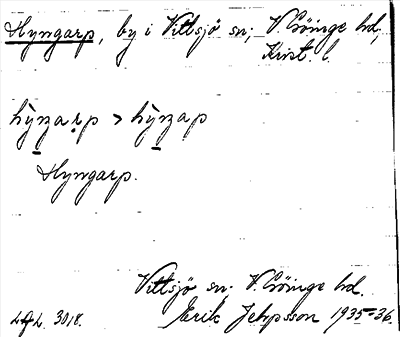 Hyngarp, by i Vittsjö sn; V. Göinge hd,
Krist. l.
Hyngarp.
Vittsjö sn; V. Göinge hd.
3018. Erik Jeppsson 1935-36.